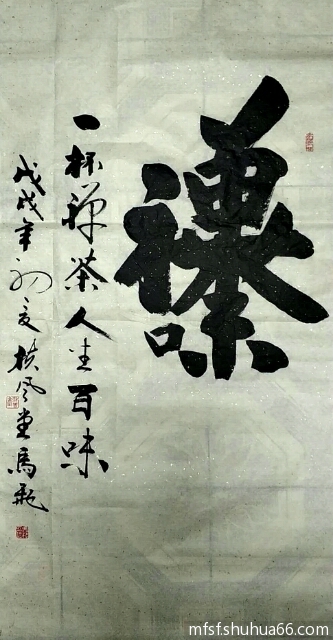 一杯禅茶人生百味
戊戌年初夏扶风堂馬
mfsf.shuhua66.com